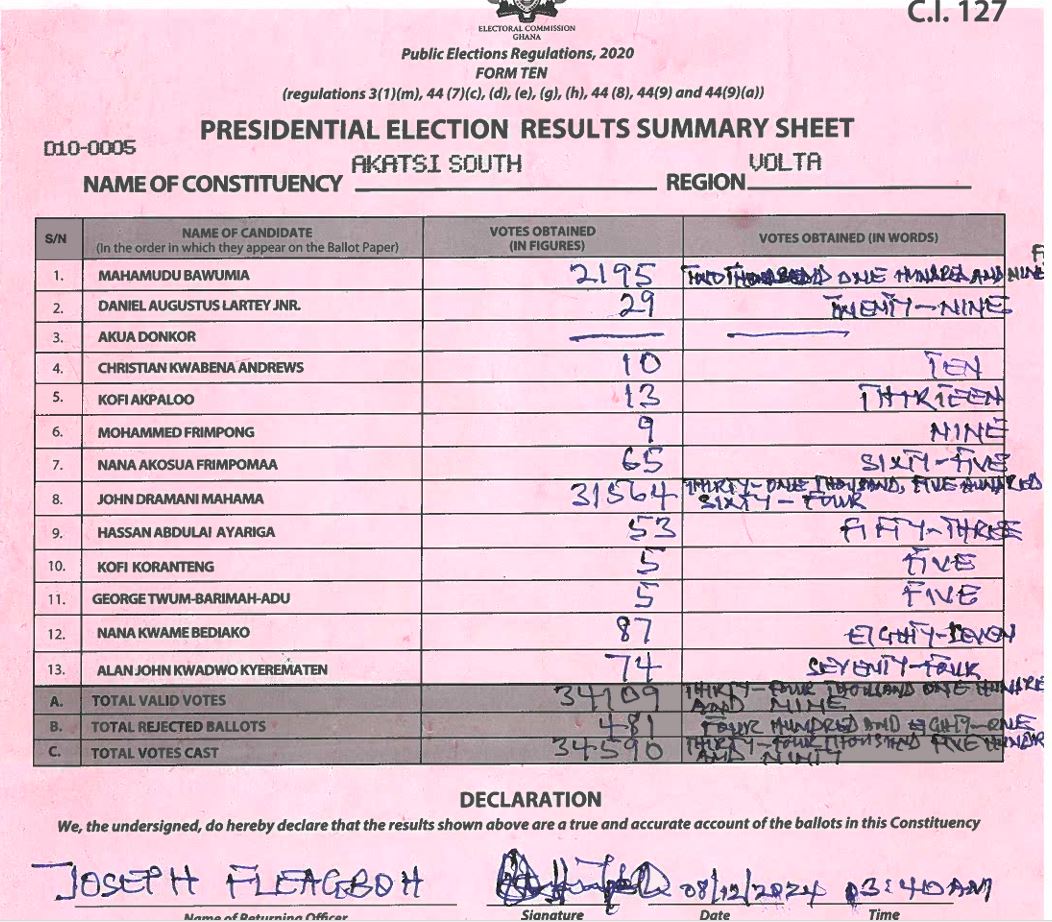 C.I. 127
ELECTORAL COMMISSION
GHANA
Public Elections Regulations, 2020
FORM TEN
(regulations 3(1)(m), 44 (7)(c), (d), (e), (g), (h), 44 (8), 44(9) and 44(9)(a))
PRESIDENTIAL ELECTION RESULTS SUMMARY SHEET
D10-0005
NAME OF CONSTITUENCY AKATSI SOUTH REGION VOLTA
S/N NAME OF CANDIDATE (In the order in which they appear on the Ballot Paper) VOTES OBTAINED (IN FIGURES) VOTES OBTAINED (IN WORDS)
1. MAHAMUDU BAWUMIA 2195 TWO THOUSAND ONE HUNDRED AND NINE
2. DANIEL AUGUSTUS LARTEY JNR. 29 TWENTY-NINE
3. AKUA DONKOR
4. CHRISTIAN KWABENA ANDREWS 10 TEN
5. KOFI AKPALOO 13 THIRTEEN
6. MOHAMMED FRIMPONG 9 NINE
7. NANA AKOSUA FRIMPOMAA 65 SIXTY-FIVE
8. JOHN DRAMANI MAHAMA 31564 THIRTY-ONE THOUSAND, FIVE HUNDRED
SIXTY-FOUR
9. HASSAN ABDULAI AYARIGA 53 FIFTY-THREE
10. KOFI KORANTENG 5 FIVE
11. GEORGE TWUM-BARIMAH-ADU 5 FIVE
12. NANA KWAME BEDIAKO 87 EIGHTY-SEVEN
13. ALAN JOHN KWADWO KYEREMATEN 74 SEVENTY-FOUR
A. TOTAL VALID VOTES 34109 THIRTY-FOUR THOUSAND ONE HUNDRE
AND NINE
B. TOTAL REJECTED BALLOTS 481 FOUR HUNDRED AND EIGHTY-ONE
C. TOTAL VOTES CAST 34590 THIRTY-FOUR THOUSAND FIVE HUNDR
AND NINTY
DECLARATION
We, the undersigned, do hereby declare that the results shown above are a true and accurate account of the ballots in this Constituency
JOSEPH FLEAGBOH 08/12/2024 03:40AM
Name of Returning Officer Signature Date Time